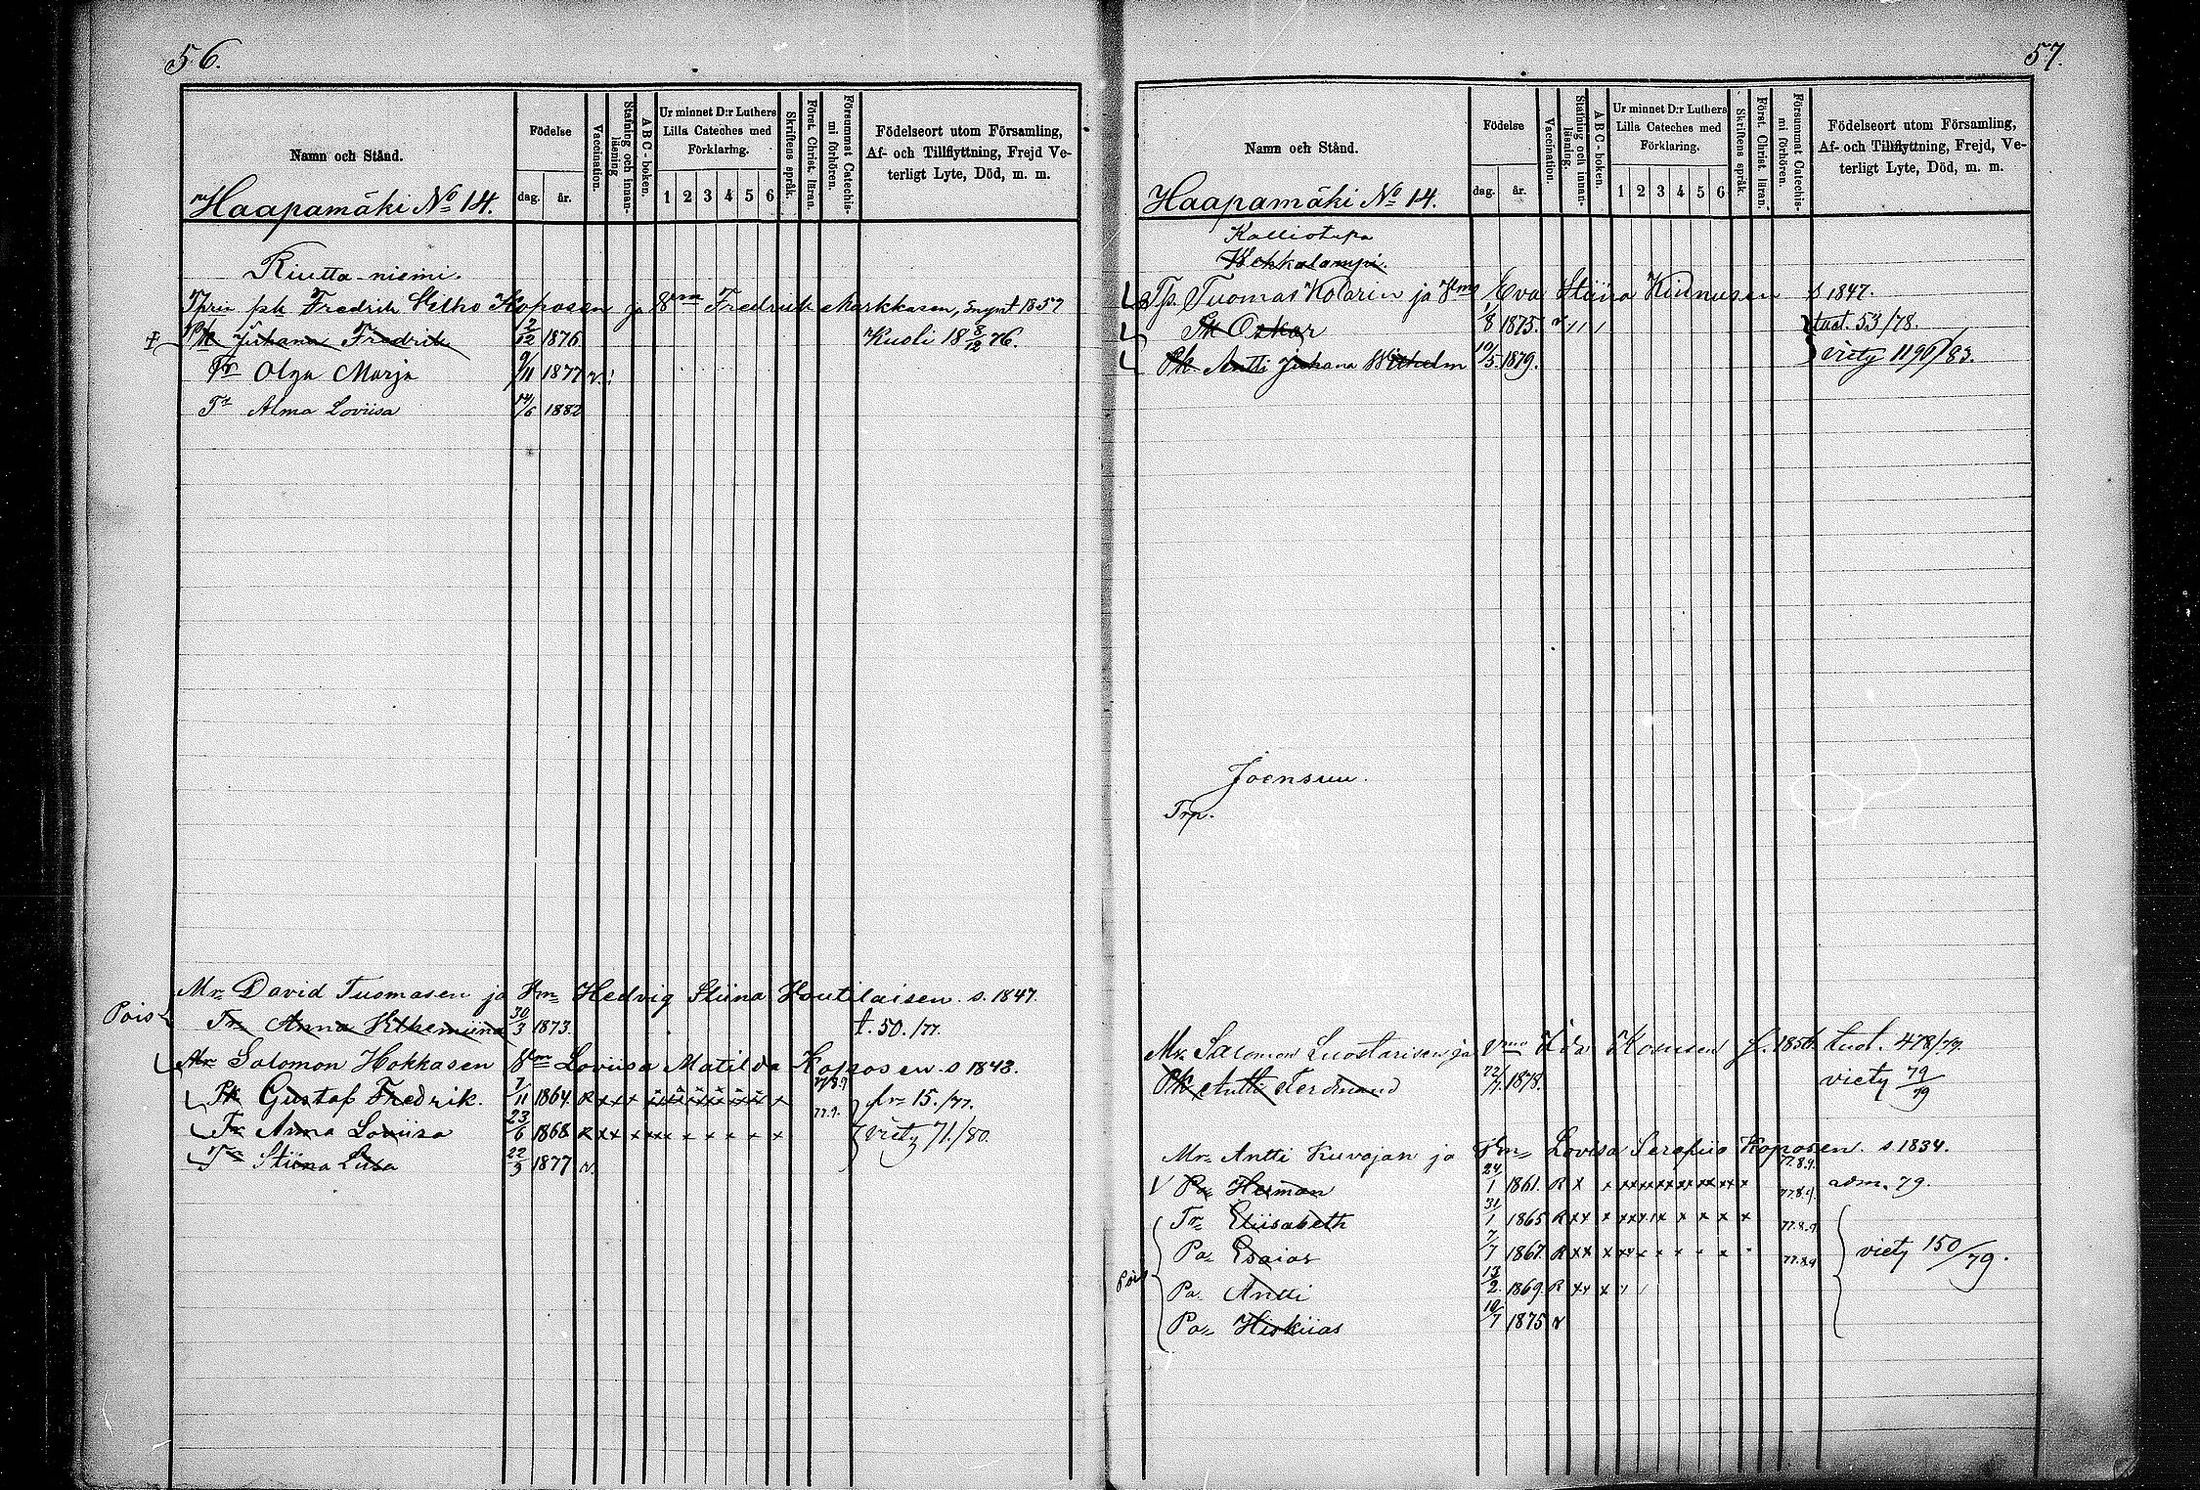 56.
Namn och Stånd.
Födelse
dag.
år.
Vaccination.
Stafning och innan-läsning
ABC-boken.
Ur minnet D:r Luthers
Lilla Cateches med
Förklaring.
1 2 3 4 5 6
Skriftens språk.
Först. Christ. läran.
Försummat Catechis-mi förhören.
Födelseort utom Församling,
Af- och Tillflyttning, Frejd Ve-
terligt Lyte, Död, m. m.
Haapamäki No 14.
Riutta-niemi.
psk Fredrik Koposen ja Fredrik Markkasen, 1857
Pk Juhana Fredrik 2/12 1876 Kuoli 18 8/12 76.
Tr Olga Marja 9/11 1877 v
Tr Alma Loviisa 14/6 1882
Mr David Tuomasen ja Hedvig Stiina Houtilaisen s. 1847.
Pois Tr Anna Vilhemiina 30/3 1873. t. 50./77.
Mr Salomon Hokkasen Loviisa Matilda Koposen s 1843.
Pk Gustaf Fredrik. 7/11 1864 R x x x 15./77.
Tr Anna Loviisa 23/6 1868 R x x x x x x x x x 77.9. viety 71./80.
Tr Stiina Liisa 22/3 1877 v.
57.
Namn och Stånd.
Födelse
dag.
år.
Vaccination.
Stafning och innan-läsning.
ABC-boken.
Ur minnet D:r Luthers
Lilla Cateches med
Förklaring.
1 2 3 4 5 6
Skriftens språk.
Först. Christ. läran.
Försummat Catechis-mi förhören.
Födelseort utom Församling,
Af- och Tillflyttning, Frejd, Ve-
terligt Lyte, Död, m. m.
Haapamäki No 14.
Kalliotupa
Tuomas Kolarin ja Eva Stiina Kinnusen s 1847.
Pk Oskar 1/8 1875. v tuot. 53/78.
Pk Antti Juhana Wilhelm 10/5 1879. viety 1196/83.
Joensuu.
Trp.
Mr. Salomon Luostarisen ja Ida Kosusen 1856. tuot. 478/79.
Pk Antti Ferdinand 22/7 1878. viety 79/79
Mr Antti Kuvajan ja Lovisa Serafiia Koposen. s 1834.
V Pa Herman 24/1 1861. R x 77.8.9. adm. 79.
Tr Eliisabeth 31/1 1865 R x x 77.8.9.
Pa Esaias 7/7 1867. R x x 77.8.9. viety 150/79.
Pois Pa Antti 13/2 1869. R x x x 77.8.9
Pa Hiskiias 10/7 1875 v